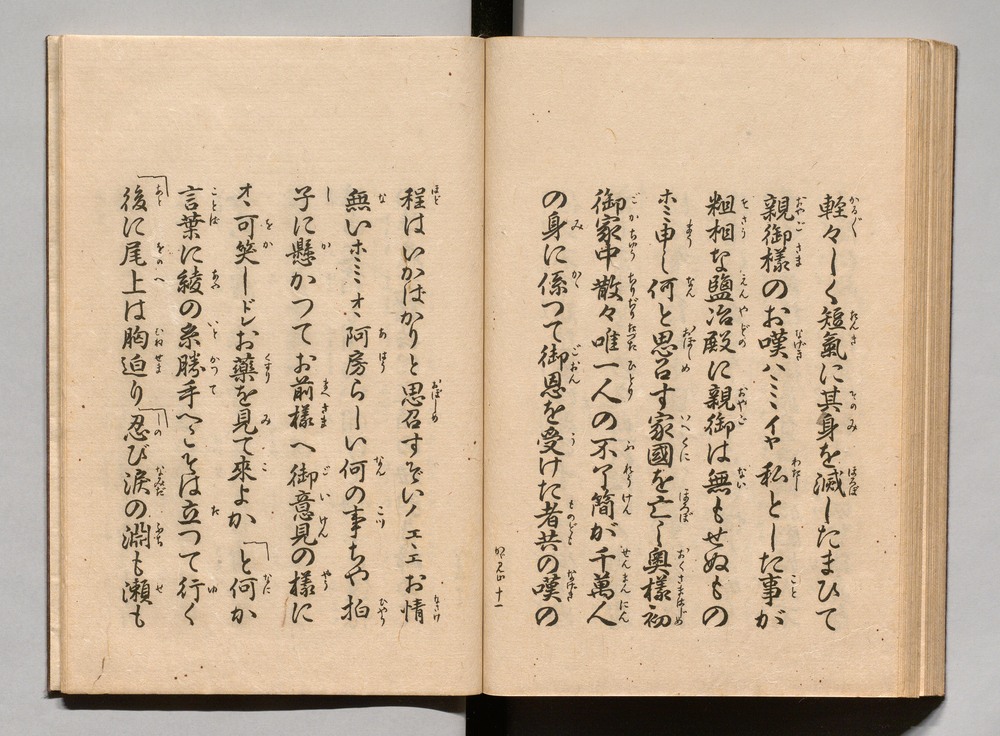 軽々しく短氣に其身を滅したまひて
親御樣のお嘆ハミミイヤ私とした事が
粗相な鹽冶殿に親御は無もせぬもの
ホミミ申し何と思召す家國を亡し奥樣初
御家中散々唯一人の不了簡が千萬人
の身に係つて御恩を受けた者共の嘆の
程はいかばかりと思召すぞいノエヽエお情
無いホミミオヽ阿房らしい何の事ちや拍
子に懸かつてお前樣へ御意見の樣に
オヽ可笑しドレお藥を見て來よか「と何か
言葉に綾の糸勝手へこそは立つて行く
「後に尾上は胸迫り「忍び淚の淵も瀬も